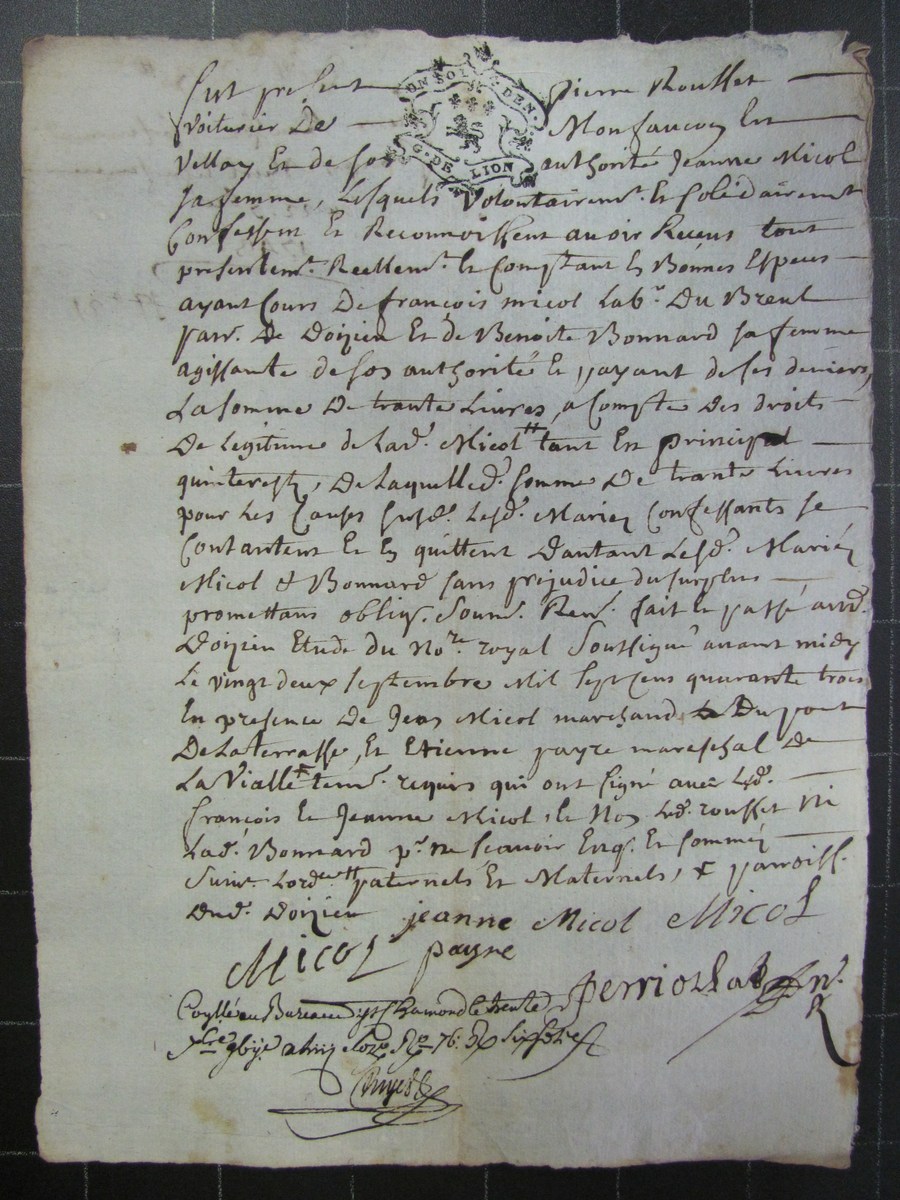 Fut present Pierre Rousset
voiturier De Monfaucon En
Vellay Et de son authorité Jeanne Micol
sa femme, Lesquels Volontairemt. Et solidairement
Confessent Et Reconnoissent avoir Receus tout
presentemt. Reellemt. Et Comptant En Bonnes Especes
ayant Cours De françois micol Labr. Du Breul
parr. De Doizieu Et de Benoite Bonnard sa femme
agissante de son authorité Et payant de ses deniers,
La somme De trante Livres, a Compte Des droits
De Legitime de Lad. Micol # tant En principal
quinterests, De Laquelle d. somme De trante Livres
pour Les Causes susd. Lesd. Mariez Confessants se
Contantent Et En quittent Dautant Lesd. Mariéz
Micol & Bonnard sans préjudice du surplus
promettans oblig. Soum. Ren. fait Et passé aud.
Doizieu Etude du Nore. royal Soussigné avant midy
Le vingt deux septembre Mil sept cens quarante trois
En presence De Jean Micol marchand Du pont
De La terrasse, Et Etienne payre mareschal de
La Vialle ŧ temn. requis qui ont signé avec Led.
françois Et Jeanne Micol, Et Non Led. rousset Ni
Lad. Bonnard pr. ne scavoir Enq. Et sommés
Suivt. Lordce. # paternels Et Maternels, ŧ parroiss.
Dud. Doizieu jeanne Micol Micol
Micol payre
Perriollat Nre.
R
Conllé au Bureau de St Chamond le trente
7bre
UN SOL DEN.
G. DE LION